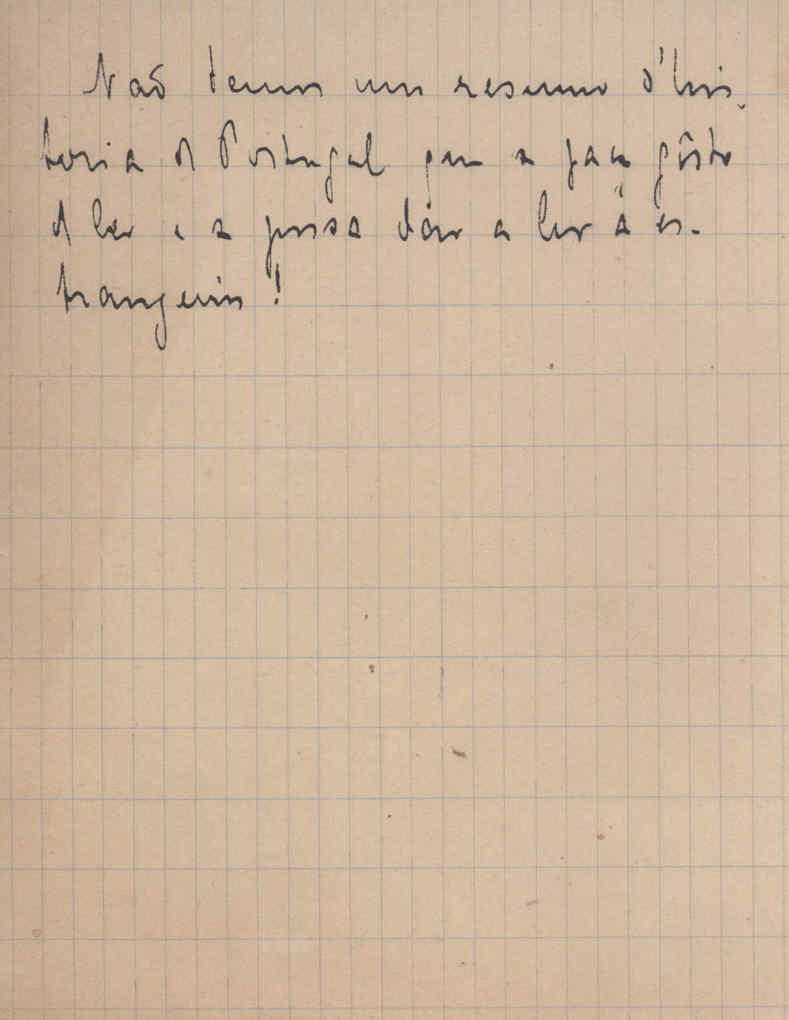 Não temos um resumo d'his-
toria de Portugal que se faça gôsto
de ler e se possa dar a ler a es-
trangeiros!